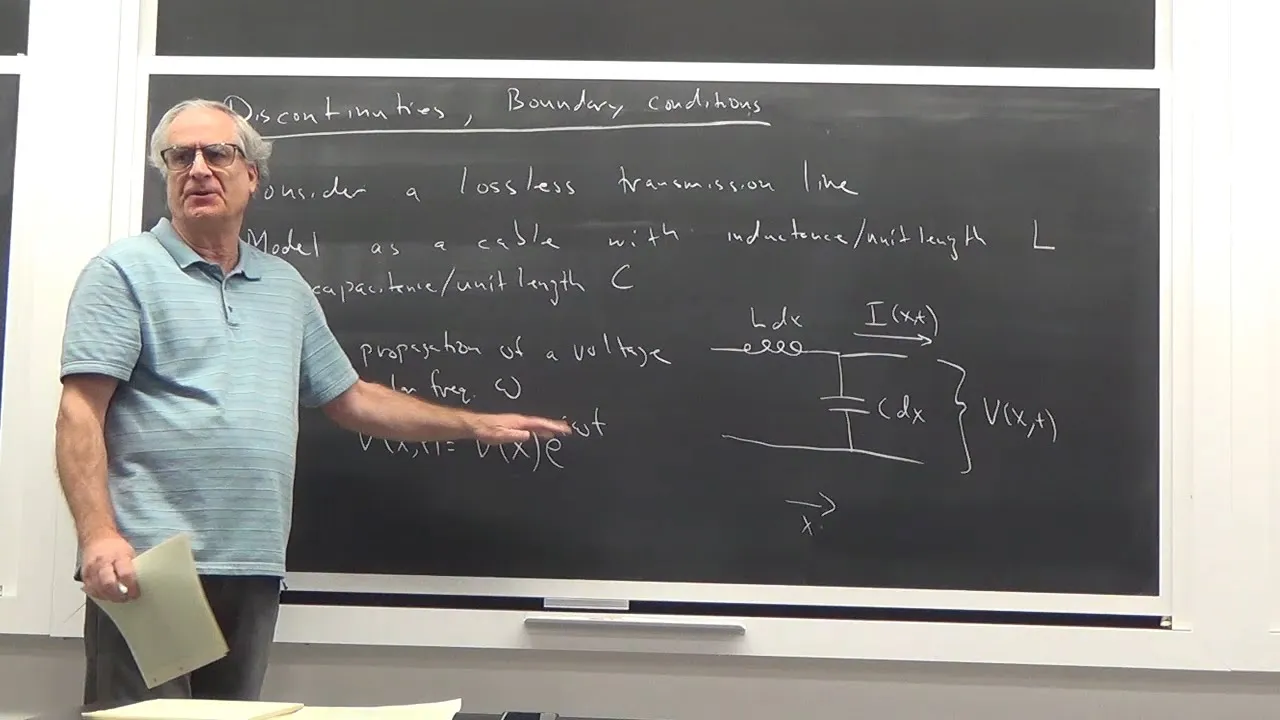 Discontinuties, Boundary conditions
Consider a lossless transmission line
Model as a cable with inductence/unit length L
capacitence/unit length C
propagation of a voltage
freq. ω
V(x,t) = V(x)e^iωt
Ldx
I(x,t)
Cdx
V(x,t)
x